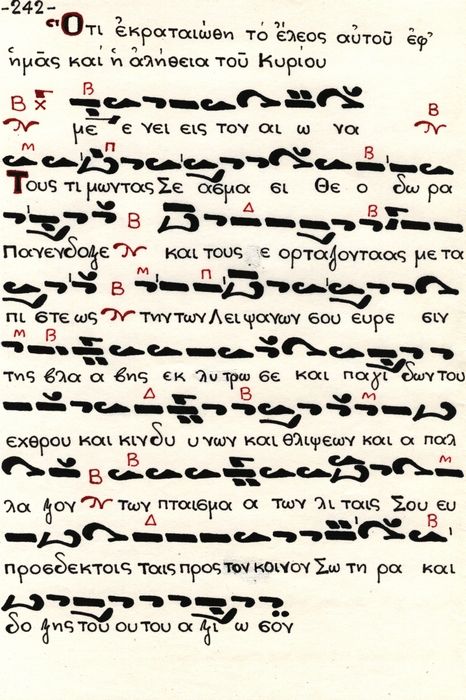 -242-
Ὅτι ἐκραταιώθη τό ἔλεος αὐτοῦ ἐφ'
ἡμᾶς καί ἡ ἀλήθεια τοῦ Κυρίου
με ε νει εις τον αι ω να
Τους τι μωντας Σε ασμα σι Θε ο δω ρα
Πανενδοξε και τους ε ορταζοντας με τα
πι στε ως την των Λειψανων σου ευρε σιν
της βλα α βης εκ λυ τρω σε και παγι δων του
εχθρου και κινδυ υ νων και θλιψεων και α παλ
λα ξον των πταισμα α των λι ταις Σου ευ
προσδεκτοις ταις προς τον κοινον Σω τη ρα και
δο ξης του ου του α ξι ω σον